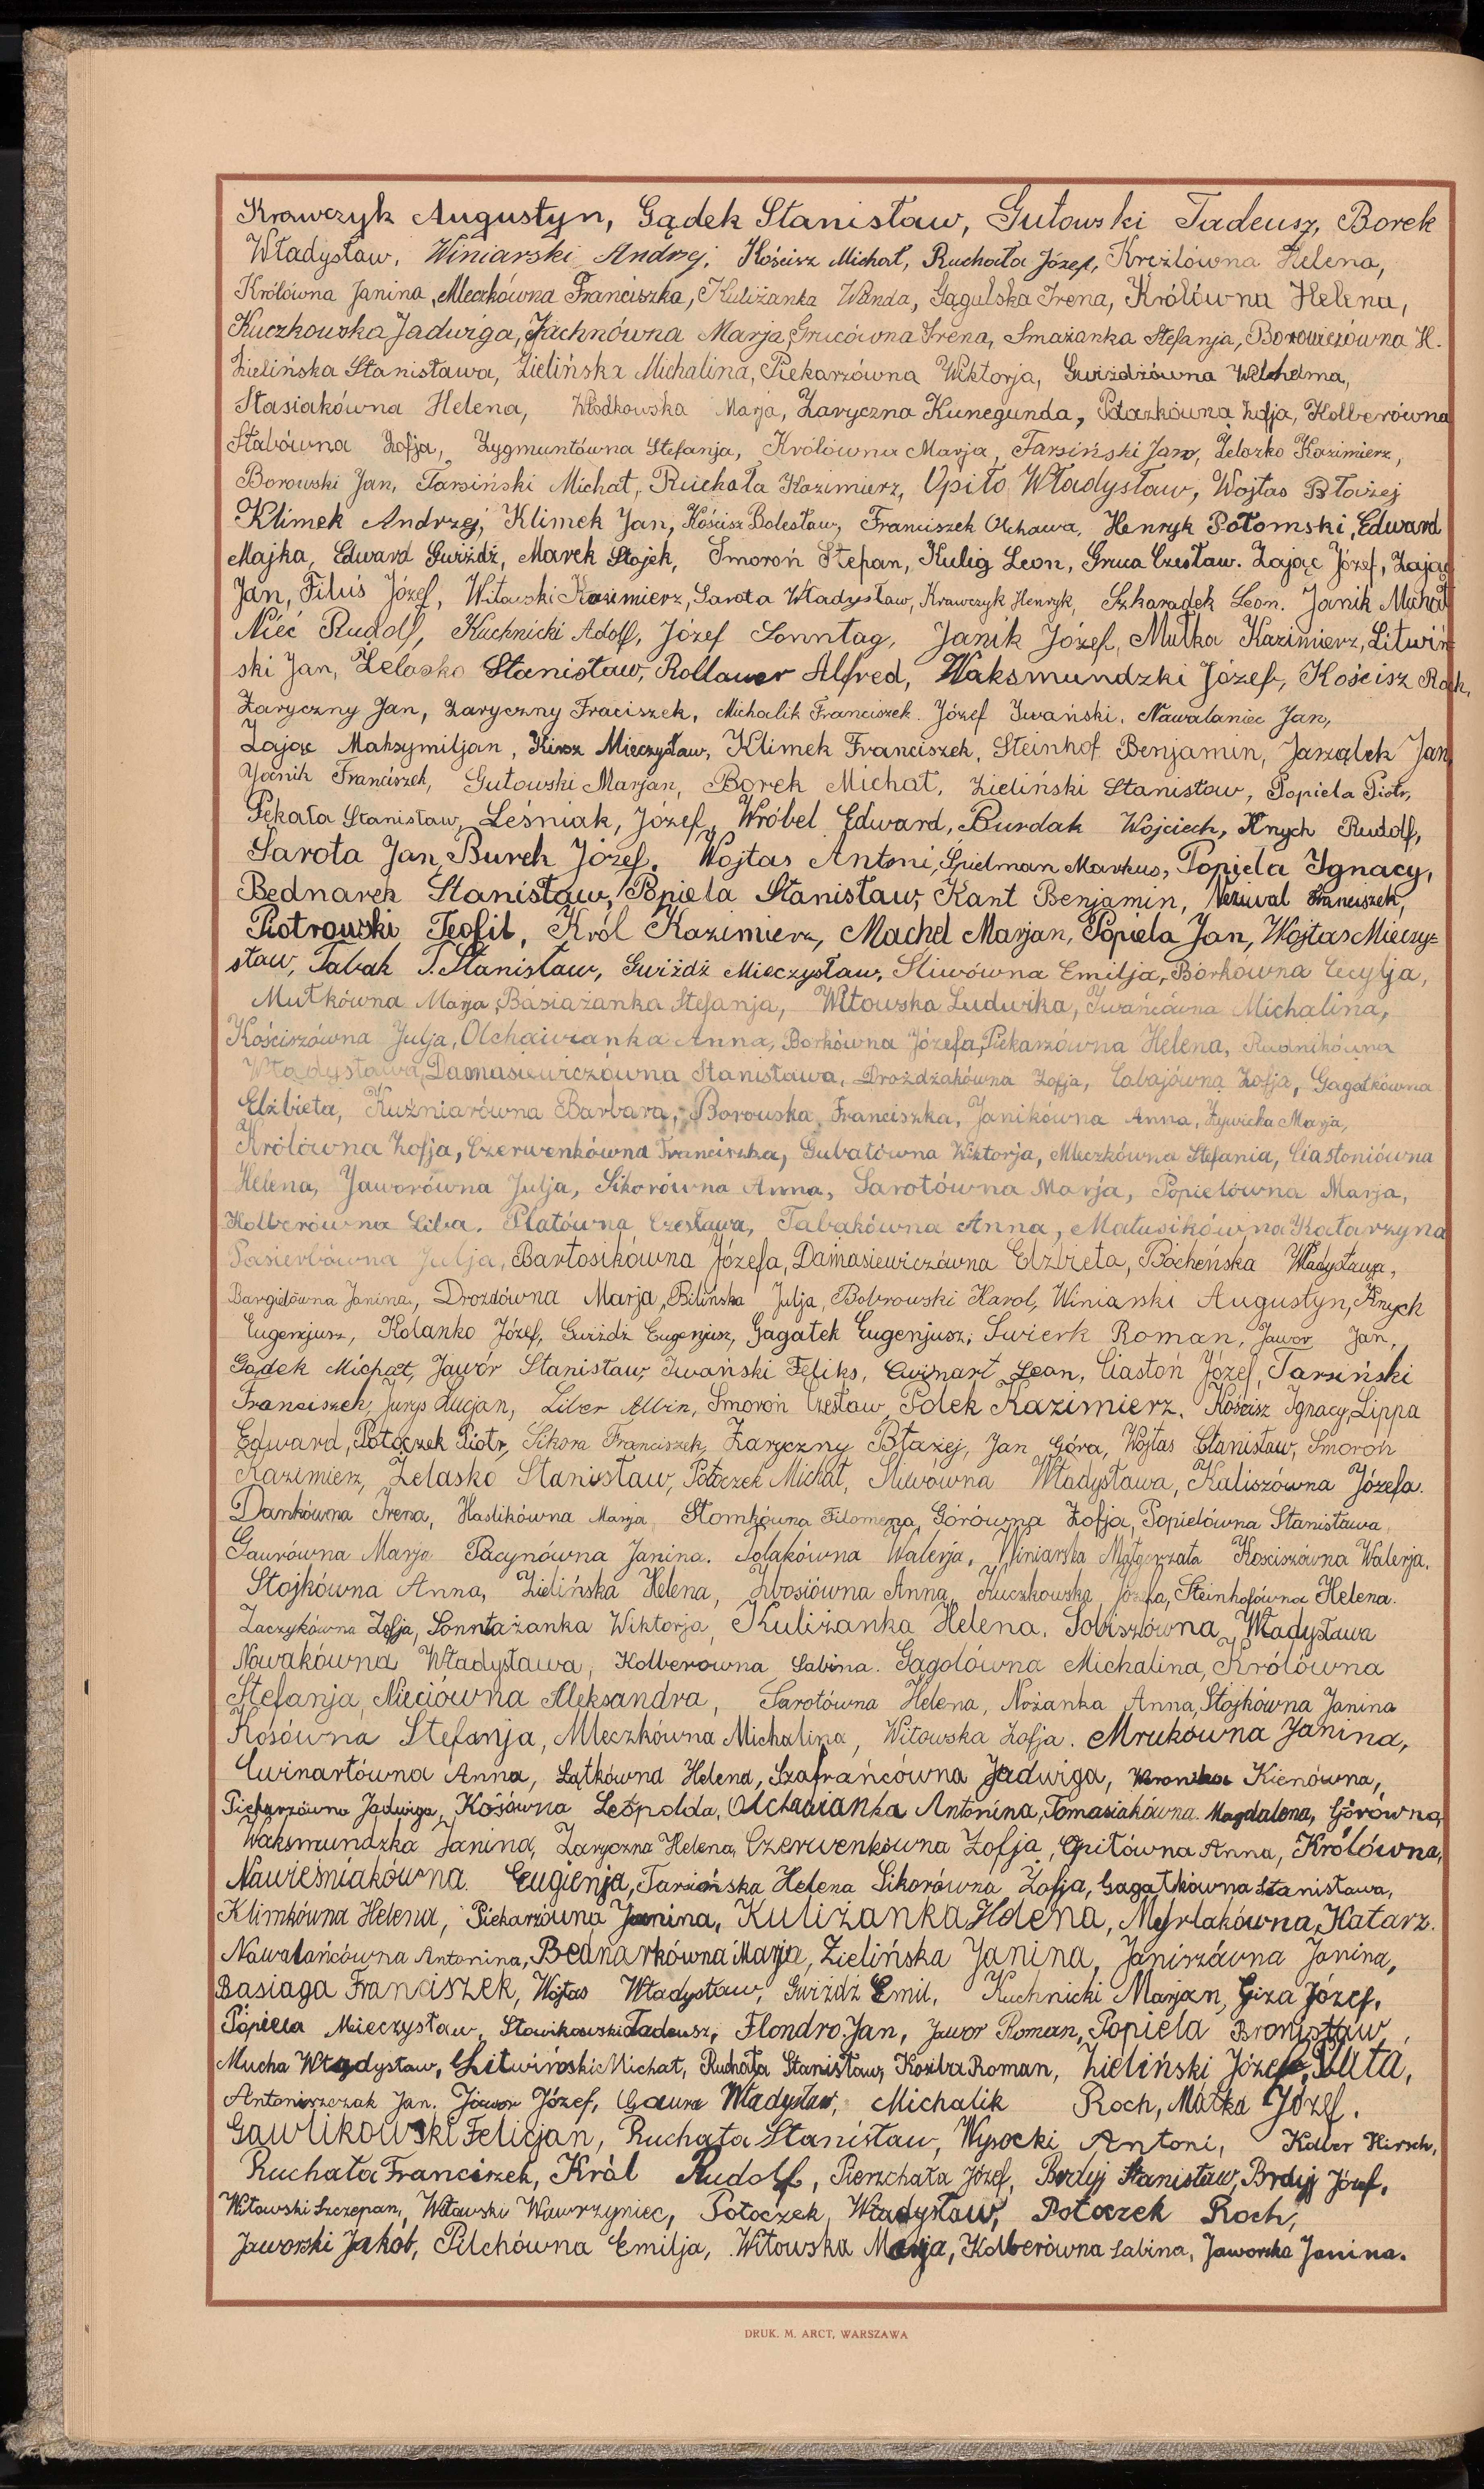 Krawczyk Augustyn, Gądek Stanisław, Gutowski Tadeusz, Borek
Władysław, Winiarski Andrzej, Kościsz Michał, Ruchała Józef, Kreżlówna Helena,
Królówna Janina, Mleczkówna Franciszka, Kuliżanka Wanda, Gągulska Irena, Królówna Helena,
Kuczkowska Jadwiga, Jachnówna Marja, Grucówna Irena, Smażanka Stefanja, Borowiczówna H.
Zielińska Stanisława, Zielińska Michalina, Piekarzówna Wiktorja, Gwiżdżówna Wilhelma,
Stasiakówna Helena, Włodkowska Marja, Zaryczna Kunegunda, Ptaszkówna Zofja, Kolberówna
Stabówna Zofja, Zygmuntówna Stefanja, Królówna Marja, Tarsiński Jan, Żelazko Kazimierz,
Borowski Jan, Tarsiński Michał, Ruchała Kazimierz, Opiło Władysław, Wojtas Błażej
Klimek Andrzej, Klimek Jan, Kościsz Bolesław, Franciszek Olchawa, Henryk Potomski, Edward
Majka, Edward Gwiżdż, Marek Stojek, Smoroń Stepan, Kulig Leon, Gruca Czesław. Zając Józef, Zając
Jan, Filuś Józef, Witowski Kazimierz, Sarota Władysław, Krawczyk Henryk, Szkaradek Leon. Janik Michał
Nieć Rudolf, Kuchnicki Adolf, Józef Sonntag, Janik Józef, Mutka Kazimierz, Litwiń-
ski Jan, Żelasko Stanisław, Rollauer Alfred, Waksmundzki Józef, Kościsz Roch,
Zaryczny Jan, Zaryczny Fraciszek, Michalik Franciszek. Józef Iwański, Nawalaniec Jan,
Zając Maksymiljan, Kirsz Mieczysław, Klimek Franciszek, Steinhof Benjamin, Jarząbek Jan
Jocnik Franciszek, Gutowski Marjan, Borek Michał, Zieliński Stanisław, Popiela Piotr,
Pękala Stanisław, Leśniak, Józef, Wróbel Edward, Burdak Wojciech, Knych Rudolf,
Sarota Jan, Burek Józef, Wojtas Antoni, Spielman Markus, Popiela Ignacy,
Bednarek Stanisław, Popiela Stanisław, Kant Benjamin, Nezuval Franciszek,
Piotrowski Teofil, Król Kazimierz, Machel Marjan, Popiela Jan, Wojtas Mieczy=
sław, Tabak T. Stanisław, Gwiżdż Mieczysław, Sliwówna Emilja, Borkówna Cecylja,
Mutkówna Marja, Basiażanka Stefanja, Witowska Ludwika, Iwańcówna Michalina,
Kościszówna Julja, Olchawianka Anna, Borkówna Józefa, Piekarzówna Helena, Rudnikówna
Władysława, Damasiewiczówna Stanisława, Drożdżakówna Zofja, Cabajówna Zofja, Gagatkówna
Elżbieta, Kuźniarówna Barbara, Borowska Franciszka, Janikówna Anna, Żywicka Marja,
Królówna Zofja, Czerwenkówna Franciszka, Gubałówna Wiktorja, Mleczkówna Stefania, Ciastoniówna
Helena, Jaworówna Julja, Sikorówna Anna, Sarotówna Marja, Popielówna Marja,
Kolberówna Liba, Platówna Czesława, Tabakówna Anna, Matusikówna Katarzyna
Pasierbówna Julja, Bartosikówna Józefa, Damasiewiczówna Elżbieta, Bocheńska Władysława,
Bargielówna Janina, Drozdówna Marja, Bilińska Julja, Bobrowski Karol, Winiarski Augustyn, Knych
Eugenjusz, Kolanko Józef, Gwiżdż Eugenjusz, Gagatek Eugenjusz, Swierk Roman, Jawor Jan,
Gądek Michał, Jawór Stanisław, Iwański Feliks, Cwinart Leon, Ciastoń Józef, Tarsiński
Franciszek, Jurys Lucjan, Liber Albin, Smoroń Czesław, Polek Kazimierz, Kościsz Ignacy, Lippa
Edward, Potoczek Piotr, Sikora Franciszek, Zaryczny Błażej, Jan Góra, Wojtas Stanisław, Smoroń
Kazimierz, Żelasko Stanisław, Potoczek Michał, Sliwówna Władysława, Kaliszówna Józefa.
Dankówna Irena, Haslikówna Marja, Słomkówna Filomena, Górówna Zofja, Popielówna Stanisława,
Gaurówna Marja Pacynówna Janina. Polakówna Walerja, Winiarska Małgorzata Kościszówna Walerja.
Stojkówna Anna, Zielińska Helena, Zbosiówna Anna, Kuczkowska Józefa, Steinhofówna Helena.
Zaczykówna Zofja, Sonntażanka Wiktorja, Kuliżanka Helena, Sobiszówna Władysława
Nowakówna Władysława, Kolberowna Sabina. Gagolówna Michalina, Królówna
Stefanja, Nieciówna Aleksandra, Sarotówna Helena, Nożanka Anna, Stojkówna Janina
Kosówna Stefanja, Mleczkówna Michalina, Witowska Zofja. Mrukówna Janina,
Cwinartówna Anna, Łątkówna Helena, Szafrańcówna Jadwiga, Weronika Kienówna,
Piekarzówna Jadwiga, Kosówna Leopolda, Olchawianka Antonina, Tomasiakówna Magdalena, Górówna,
Waksmundzka Janina, Zaryczna Helena, Czerwenkówna Zofja, Opitówna Anna, Królówna,
Nawieśniakówna. Eugienja, Tarsińska Helena Sikorówna Zofja, Gagatkówna Stanisława,
Klimkówna Helena, Piekarzówna Janina, Kuliżanka Helena, Myrlakówna, Katarz.
Nawalańcówna Antonina, Bednarkówna Marja, Zielińska Janina, Janiszówna Janina,
Basiaga Franciszek, Wojtas Władysław, Gwiżdż Emil, Kuchnicki Marjan, Giza Józef,
Popiela Mieczysław, Sławikowski Tadeusz, Flondro Jan, Jawor Roman, Popiela Bronisław,
Mucha Władysław, Litwiński Michał, Ruchała Stanisław, Koziba Roman, Zieliński Józef, Puta,
Antoniszczak Jan. Jawor Józef, Gaura Władysław, Michalik Roch, Małka Józef.
Gawlikowski Felicjan, Ruchała Stanisław, Wysocki Antoni, Kolber Hirsch,
Ruchała Franciszek, Król Rudolf, Pierzchała Józef, Brdyj Stanisław, Brdyj Józef,
Witowski Szczepan, Witowski Wawrzyniec, Potoczek, Władysław, Potoczek Roch,
Jaworski Jakób, Pilchówna Emilja, Witowska Marja, Kolberówna Sabina, Jaworska Janina.
DRUK. M. ARCT, WARSZAWA